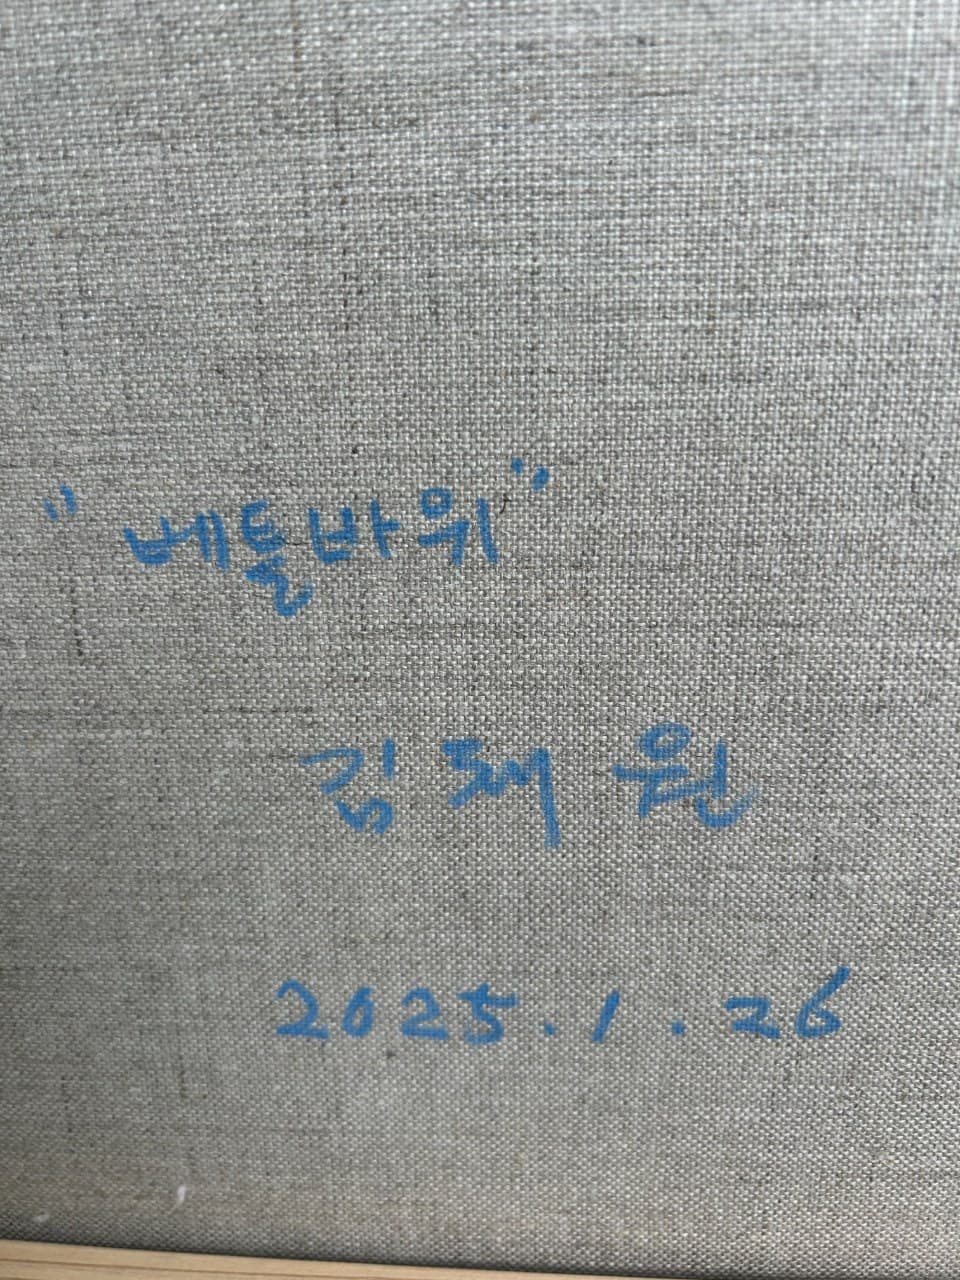 "베틀바위"
김재원
2025.1.26